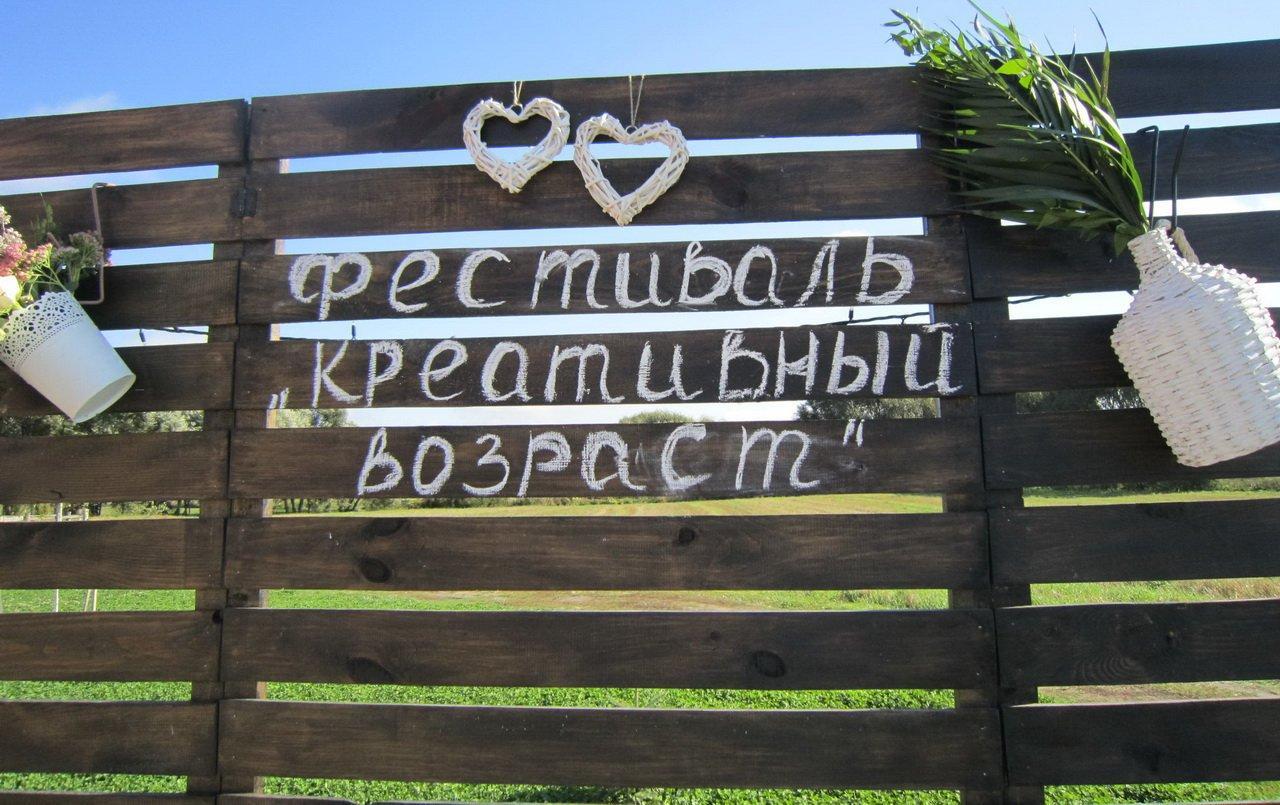 Фестиваль
„Креативный
возраст"